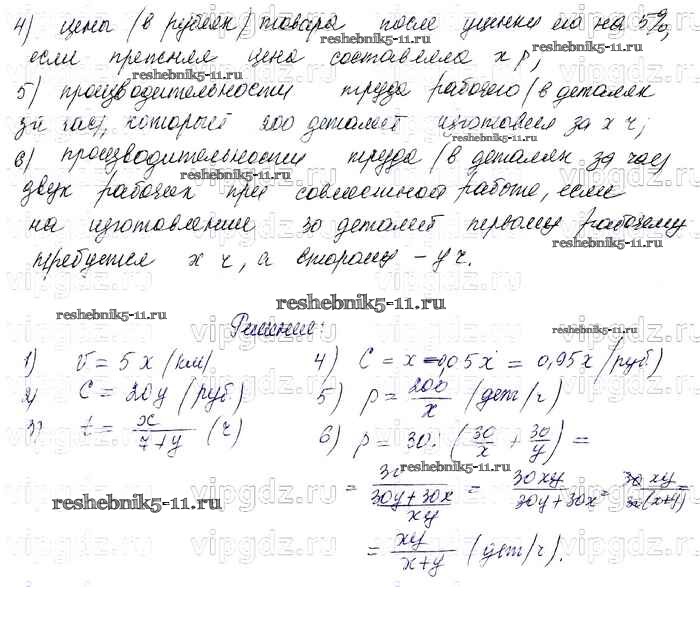 4) цены (в рублях) товара после уценки его на 5%,
если прежняя цена составляла x р;
reshebnik5-11.ru
5) производительности труда рабочего (в деталях
за час), который 200 деталей изготовил за x ч;
reshebnik5-11.ru
6) производительности труда (в деталях за час)
двух рабочих при совместной работе, если
reshebnik5-11.ru
на изготовление 30 деталей первому рабочему
reshebnik5-11.ru
требуется x ч, а второму - y ч.
reshebnik5-11.ru
reshebnik5-11.ru
Решение:
reshebnik5-11.ru
1) v = 5x (км) 4) C = x - 0,05x = 0,95x (руб)
2) C = 20y (руб) 5) p = 200/x (дет/ч)
3) t = x/(7+y) (ч) 6) p = 30 : (30/x + 30/y) =
= 30/((30y+30x)/xy) = 30xy/(30y+30x) = 30xy/30(x+y) =
reshebnik5-11.ru
= xy/(x+y) (дет/ч).
vipgdz.ru